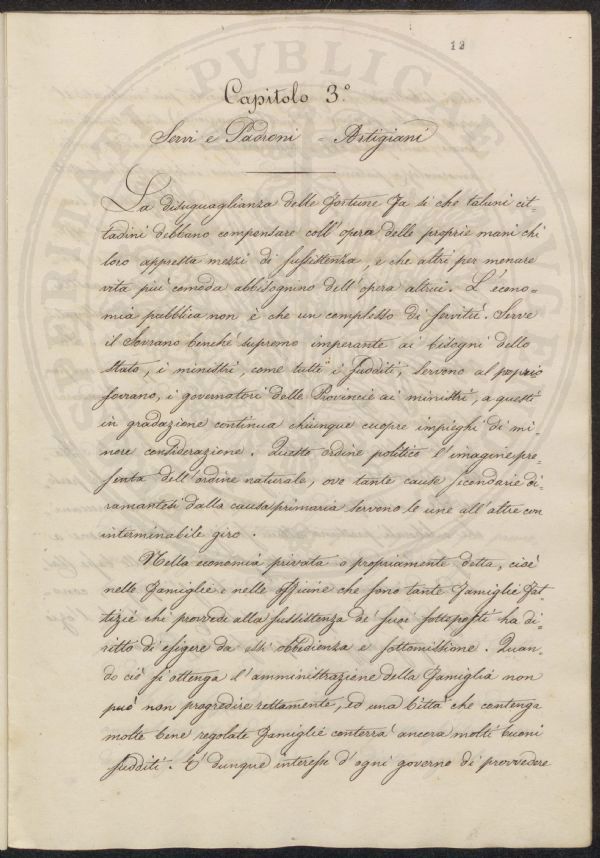 12
Capitolo 3.º
Servi e Padroni = Artigiani
La disuguaglianza delle fortune fa sì che taluni cit-
tadini debbano compensare coll'opera delle proprie mani chi
loro appresta mezzi di sussistenza, e che altri per menare
vita più comoda abbisognino dell'opera altrui. L'econo-
mia pubblica non è che un complesso di servitù. Serve
il Sovrano benché supremo imperante ai bisogni dello
Stato, i ministri, come tutti i sudditi, servono al proprio
sovrano, i governatori delle Provincie ai ministri, a questi
in gradazione continua chiunque cuopre impieghi di mi-
nore considerazione. Questo ordine politico l'imagine pre-
senta dell'ordine naturale, ove tante cause secondarie di-
ramantesi dalla causa primaria servono le une all'altre con
interminabile giro.
Nella economia privata o propriamente detta, cioè
nelle famiglie e nelle officine che sono tante famiglie fat-
tizie chi provvede alla sussistenza de' suoi sottoposti ha di-
ritto di esigere da essi obbedienza e sottomissione. Quan-
do ciò si ottenga l'amministrazione della famiglia non
può non progredire rettamente, ed una Città che contenga
molte bene regolate famiglie conterrà ancora molti buoni
sudditi. È dunque interesse d'ogni governo di provvedere